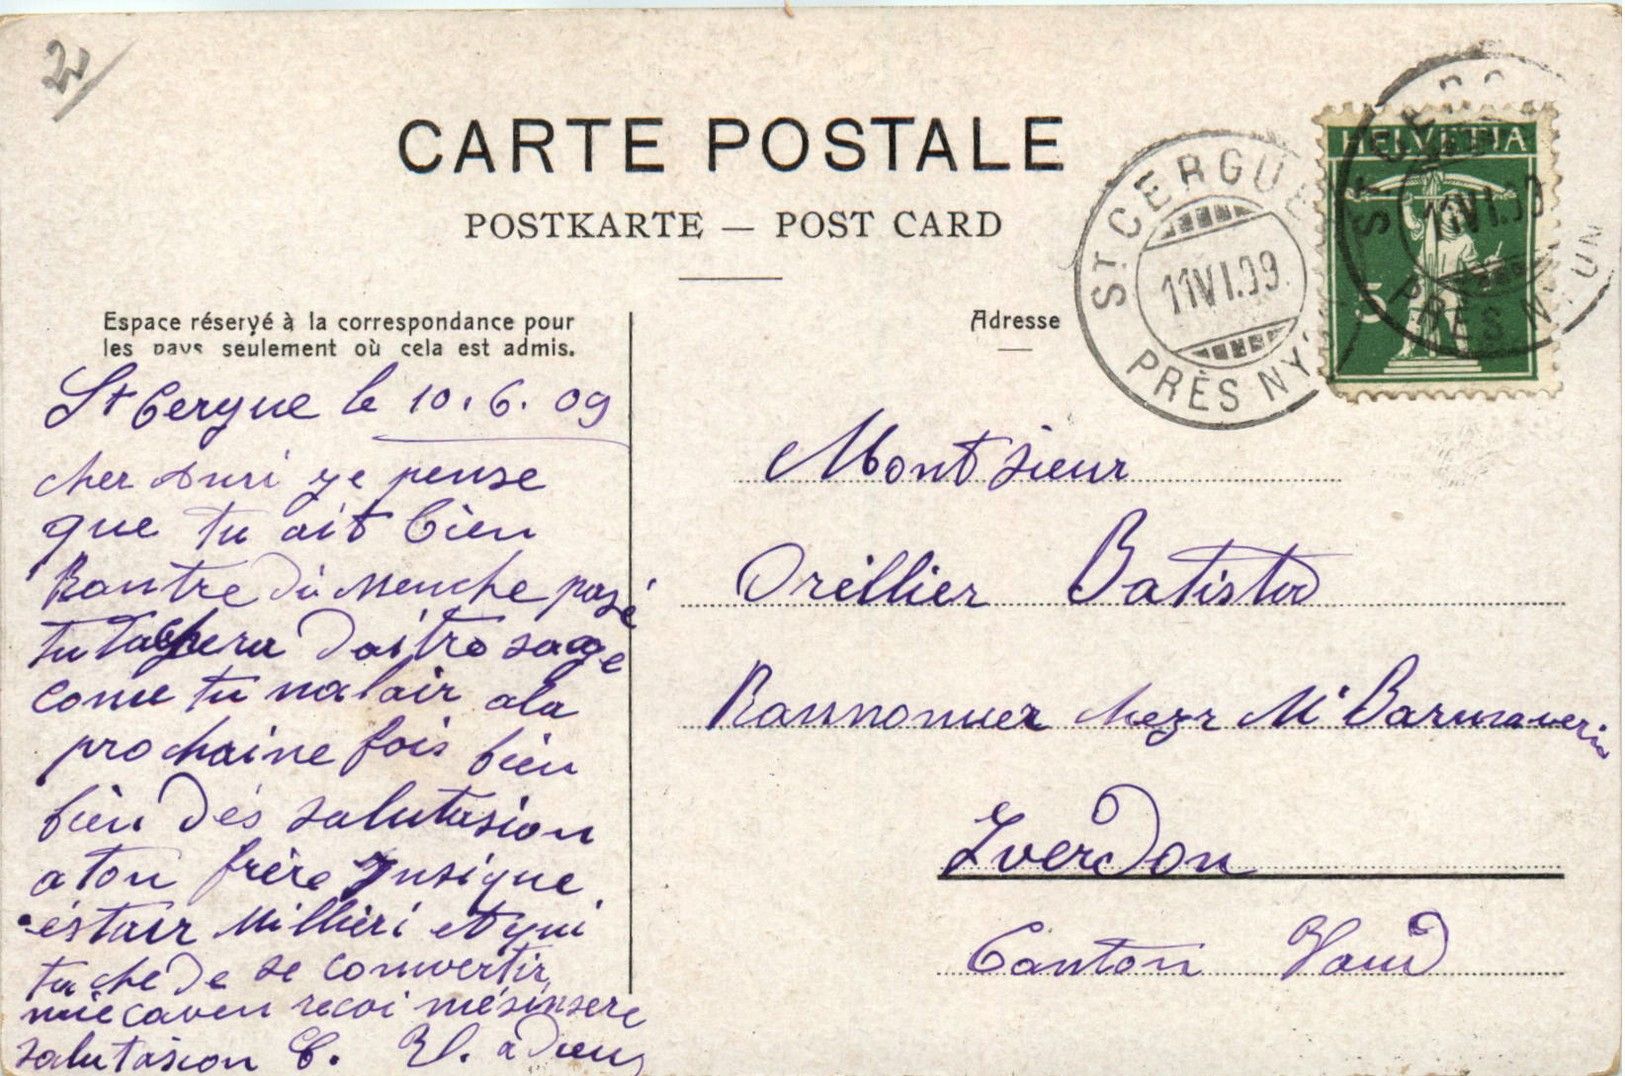 2
CARTE POSTALE
POSTKARTE — POST CARD
Espace réservé à la correspondance pour
les pays seulement où cela est admis.
Adresse
ST CERGUE
11 VI.09
PRÈS NY
HELVETIA
5
ST CERG
11 VI.09
PRÈS N UN
St Cergue le 10.6.09
cher ye pense
que tu ait bien
Rantre di menche pasé
tu tachera daitre sage
come tu nalair ala
prochaine fois bien
bien dés salutasion
a ton frère
éstair Millieri et qui
tache de se convertir
recoi més sinsere
salutasion C. adieu
Montsieur
Oréllier Batista
Rammonuer chezr Mr
Yverdon
Canton Vaud